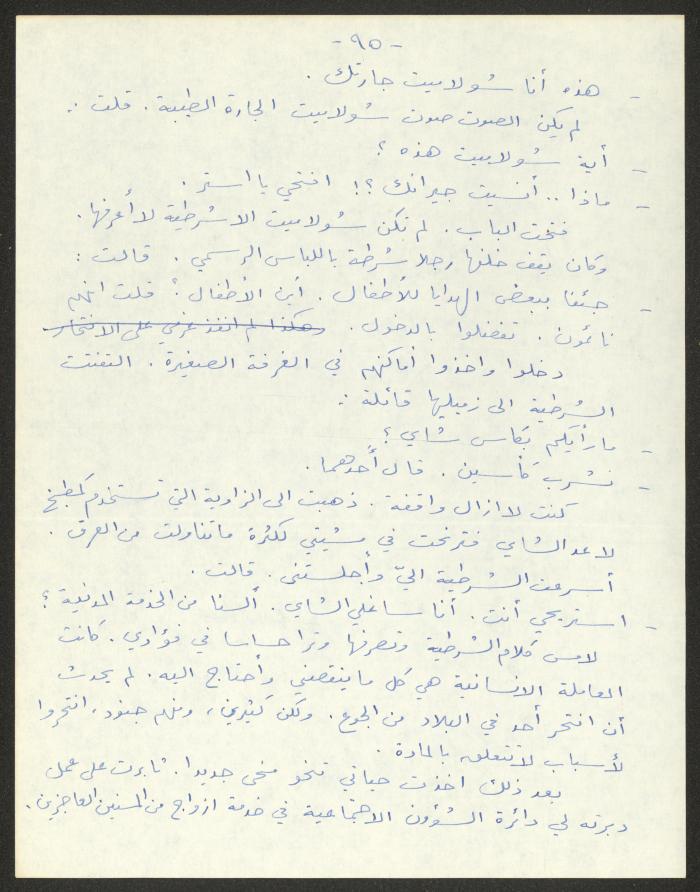 - ٩٥ -
- هذه أنا شولاميت جارتك .
لم يكن الصوت صوت شولاميت الجارة الطيبة . قلت :
- أية شولاميت هذه ؟
- ماذا .. أنسيت جيرانك ؟! افتحي يا استر .
فتحت الباب . لم تكن شولاميت الا شرطية لا أعرفها .
وكان يقف خلفها رجلا شرطة باللباس الرسمي . قالت :
- جئنا ببعض الهدايا للأطفال . أين الأطفال ؟ قلت انهم
نائمون . تفضلوا بالدخول . وهكذا لم انفذ عزمي على الانتحار
دخلوا واخذوا أماكنهم في الغرفة الصغيرة . التفتت
الشرطية الى زميليها قائلة :
- ما رأيكم بكاس شاي ؟
- نشرب كأسين . قال أحدهما .
كنت لا ازال واقفة . ذهبت الى الزاوية التي تستخدم كمطبخ
لاعد الشاي فترنحت في مشيتي لكثرة ما تناولت من العرق .
أسرعت الشرطية اليّ وأجلستني . قالت .
- استريحي أنت . أنا ساغلي الشاي . ألسنا من الخدمة المدنية ؟
لامس كلام الشرطية وتصرفها وترا حساسا في فؤادي . كانت
المعاملة الانسانية هي كل ما ينقصني وأحتاج اليه . لم يحدث
أن انتحر أحد في البلاد من الجوع . ولكن كثيرين ، ومنهم جنود ، انتحروا
لأسباب لا تتعلق بالمادة .
بعد ذلك اخذت حياتي تنحو منحى جديدا . ثابرت على عمل
دبرته لي دائرة الشؤون الاجتماعية في خدمة ازواج من المسنين العاجزين .